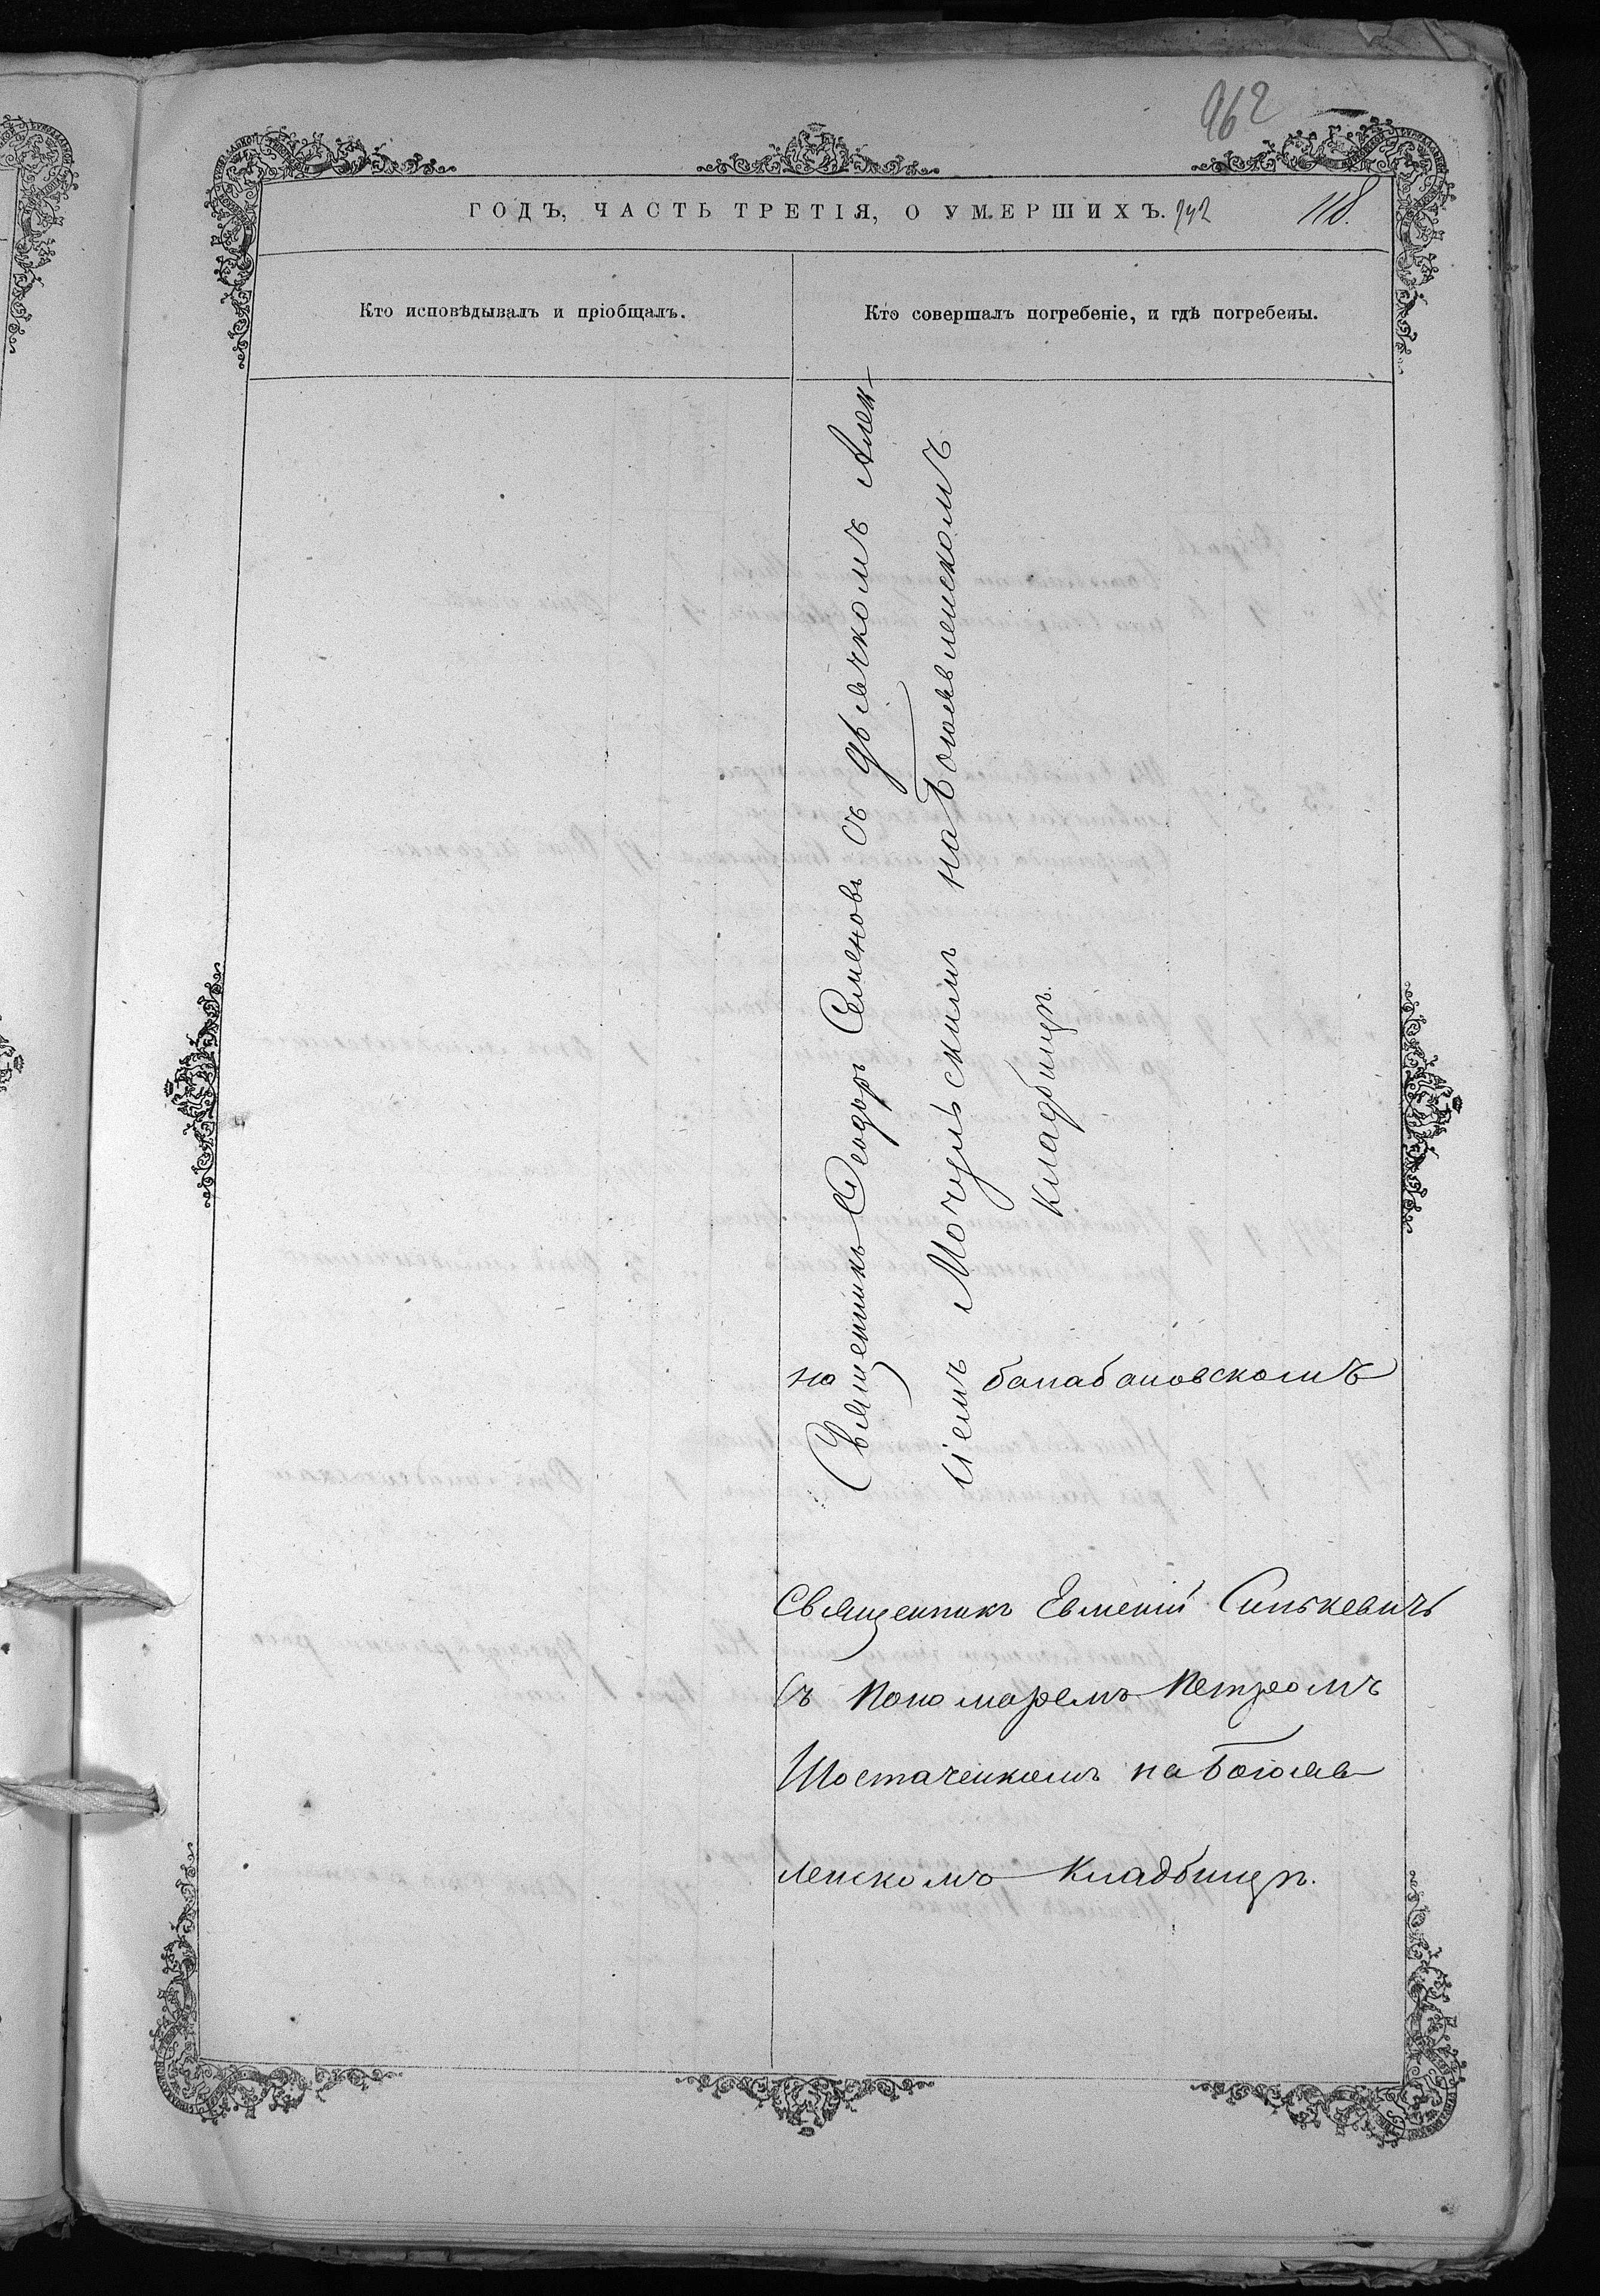 962
ГОДЪ, ЧАСТЬ ТРЕТІЯ, О УМЕРШИХЪ.
118.
Кто исповѣдывалъ и пріобщалъ.
Кто совершалъ погребеніе, и гдѣ погребены.
Священникъ Ѳеодоръ Семеновъ съ дьячкомъ Алек-
сіемъ Мочульскимъ на Богоявленскомъ
кладбищѣ.
на балабановскомъ
Священникъ Евменій Синькевичъ
съ пономаремъ Петромъ
Шостаченкомъ на Богояв
ленскомъ кладбищѣ.